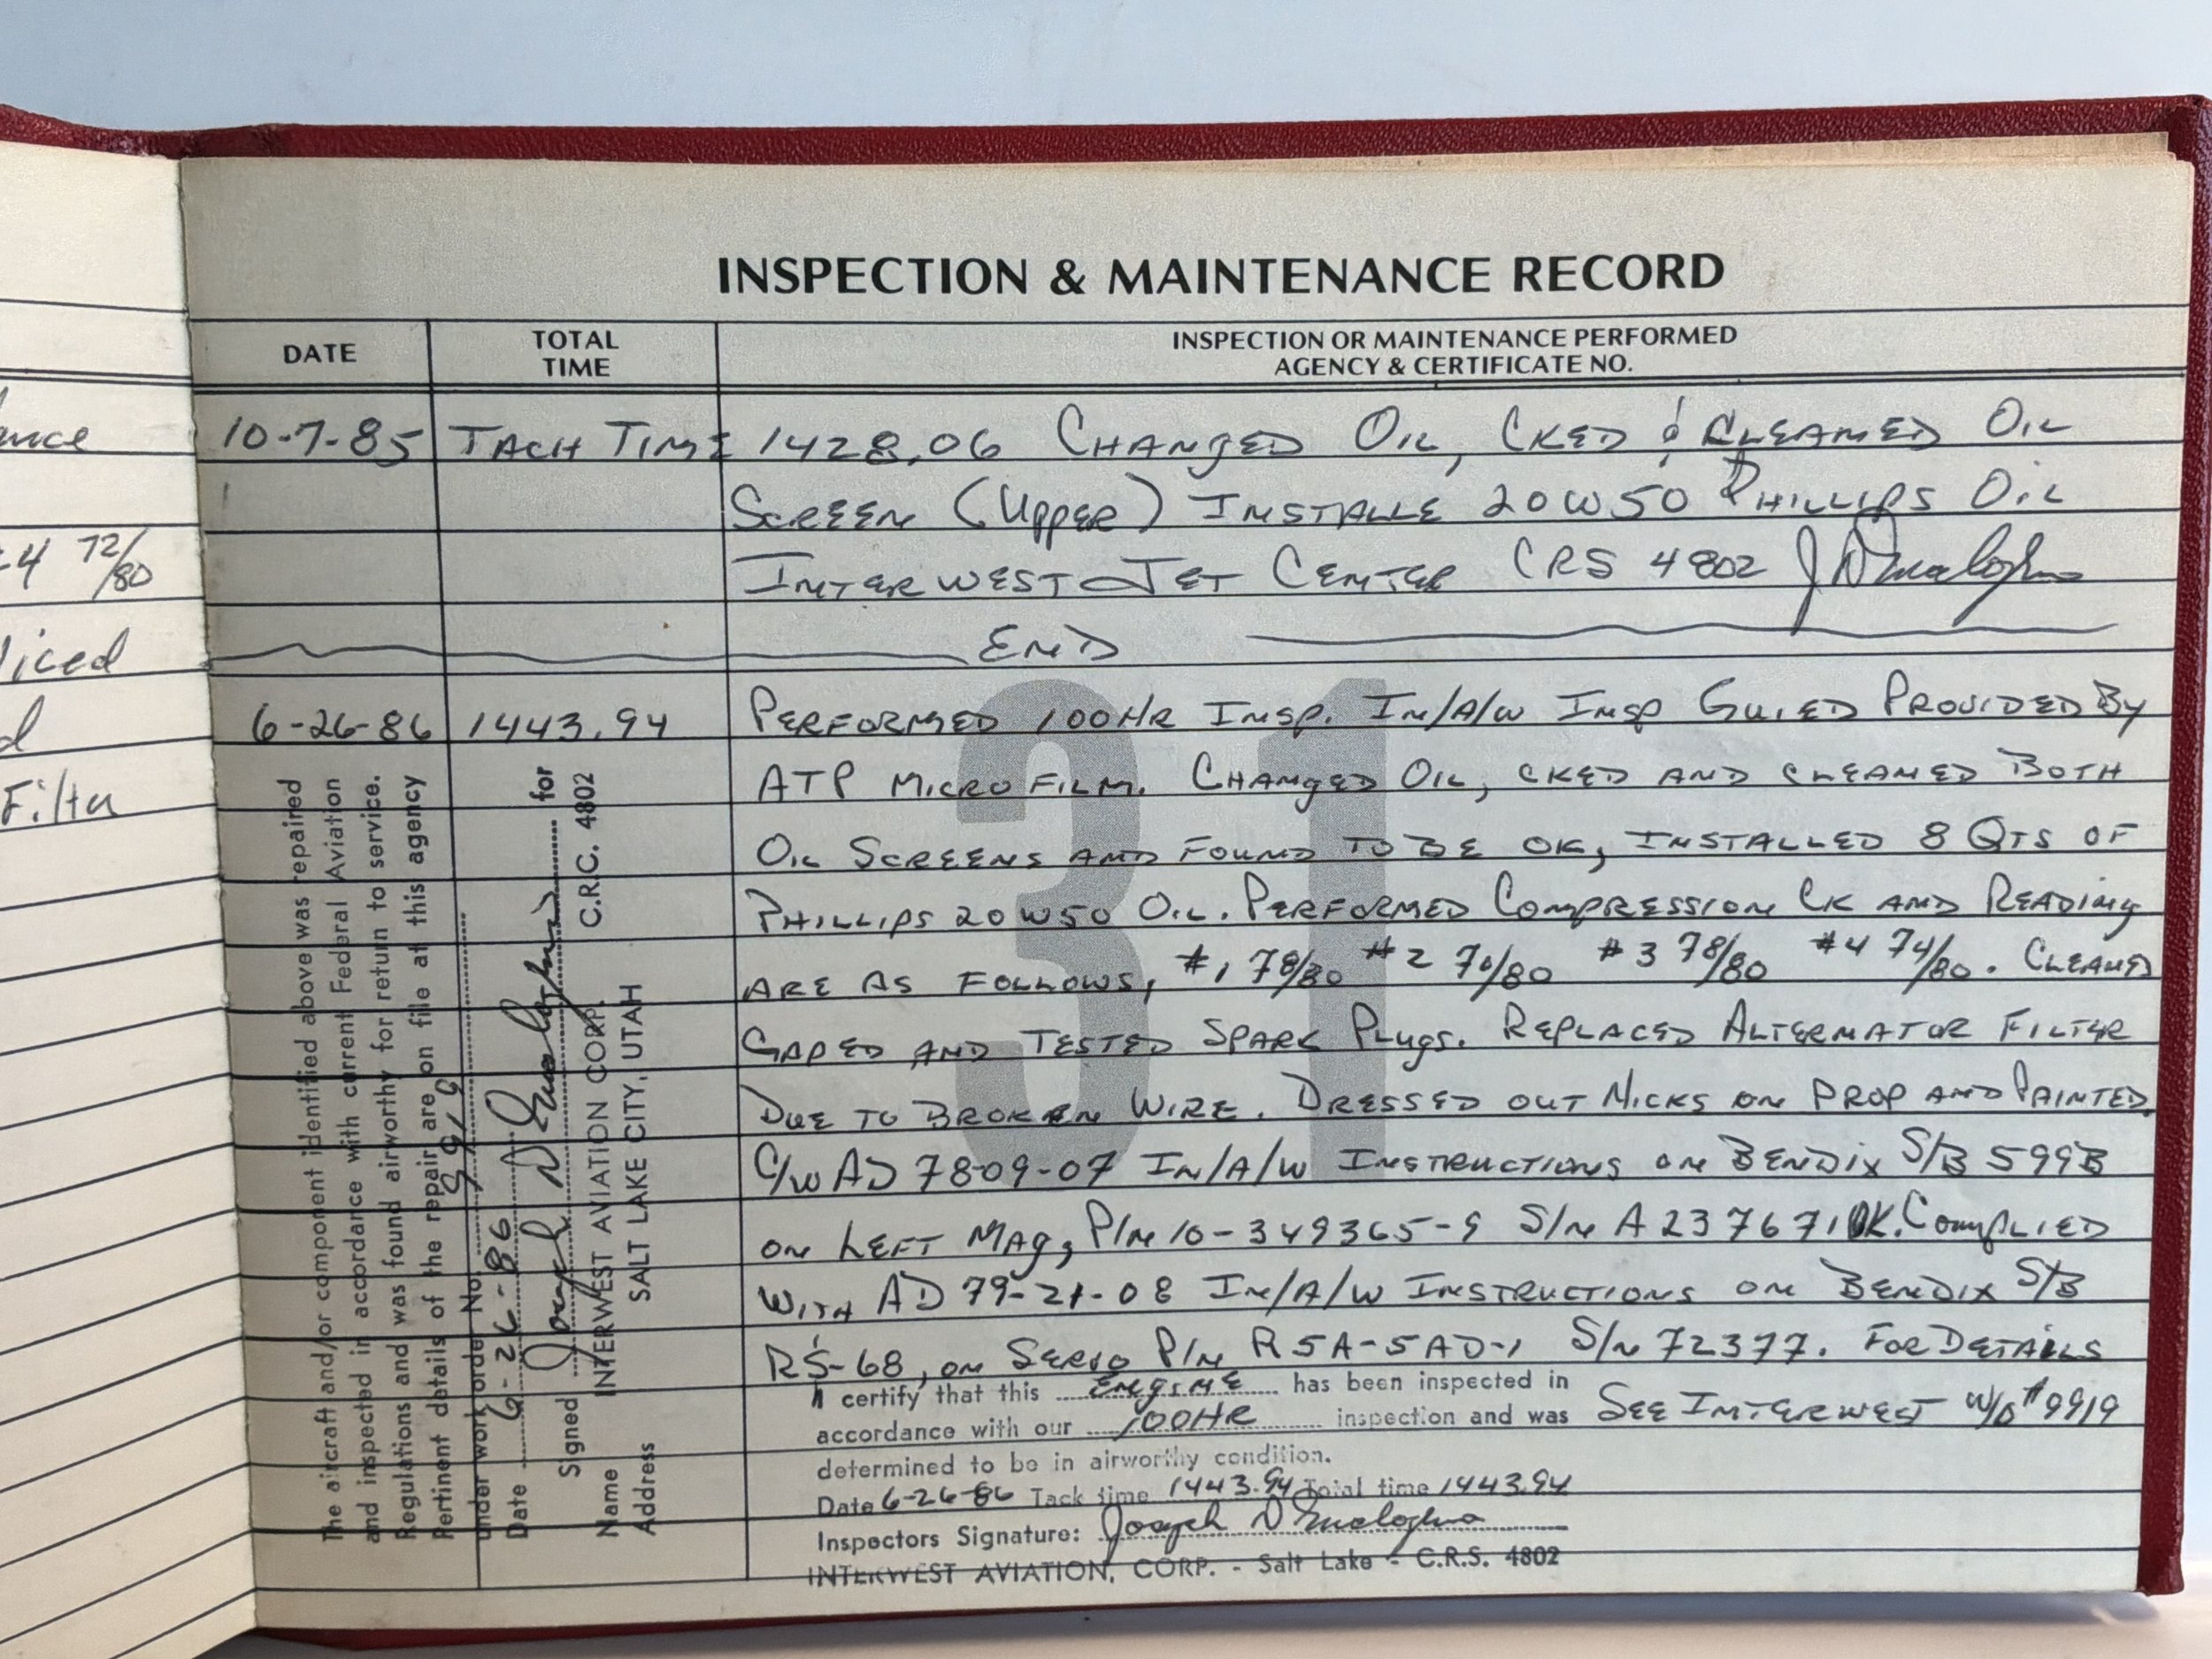 ance
-4 72/80
liced
d
Filter
INSPECTION & MAINTENANCE RECORD
DATE
TOTAL TIME
INSPECTION OR MAINTENANCE PERFORMED
AGENCY & CERTIFICATE NO.
10-7-85 TACH TIME 1428.06 CHANGED OIL, CKED & CLEANED OIL
SCREEN (UPPER) INSTALLE 20W50 PHILLIPS OIL
INTERWEST JET CENTER CRS 4802
END
6-26-86 1443.94 PERFORMED 100HR INSP. IN/A/W INSP GUIED PROVIDED BY
ATP MICROFILM. CHANGED OIL, CKED AND CLEANED BOTH
OIL SCREENS AND FOUND TO BE OK, INSTALLED 8 QTS OF
PHILLIPS 20W50 OIL. PERFORMED COMPRESSION CK AND READING
ARE AS FOLLOWS, #1 78/80 #2 70/80 #3 78/80 #4 74/80. CLEANED
GAPED AND TESTED SPARK PLUGS. REPLACED ALTERNATOR FILTER
DUE TO BROKEN WIRE. DRESSED OUT NICKS ON PROP AND PAINTED.
C/W AD 78-09-07 IN/A/W INSTRUCTIONS ON BENDIX S/B 599B
ON LEFT MAG, P/N 10-349365-9 S/N A237671 OK. COMPLIED
WITH AD 79-21-08 IN/A/W INSTRUCTIONS ON BENDIX S/B
RS-68, ON SERVO P/N RSA-5AD-1 S/N 72377. FOR DETAILS
SEE INTERWEST W/O #9919
I certify that this ENGINE has been inspected in
accordance with our 100HR inspection and was
determined to be in airworthy condition.
Date 6-26-86 Tack time 1443.94 Total time 1443.94
Inspectors Signature: Joseph
INTERWEST AVIATION, CORP. - Salt Lake - C.R.S. 4802
The aircraft and/or component identified above was repaired
and inspected in accordance with current Federal Aviation
Regulations and was found airworthy for return to service.
Pertinent details of the repair are on file at this agency
under work order No. 9919
Date 6-26-86
Signed Joseph for
Name INTERWEST AVIATION CORP. C.R.C. 4802
Address SALT LAKE CITY, UTAH
31